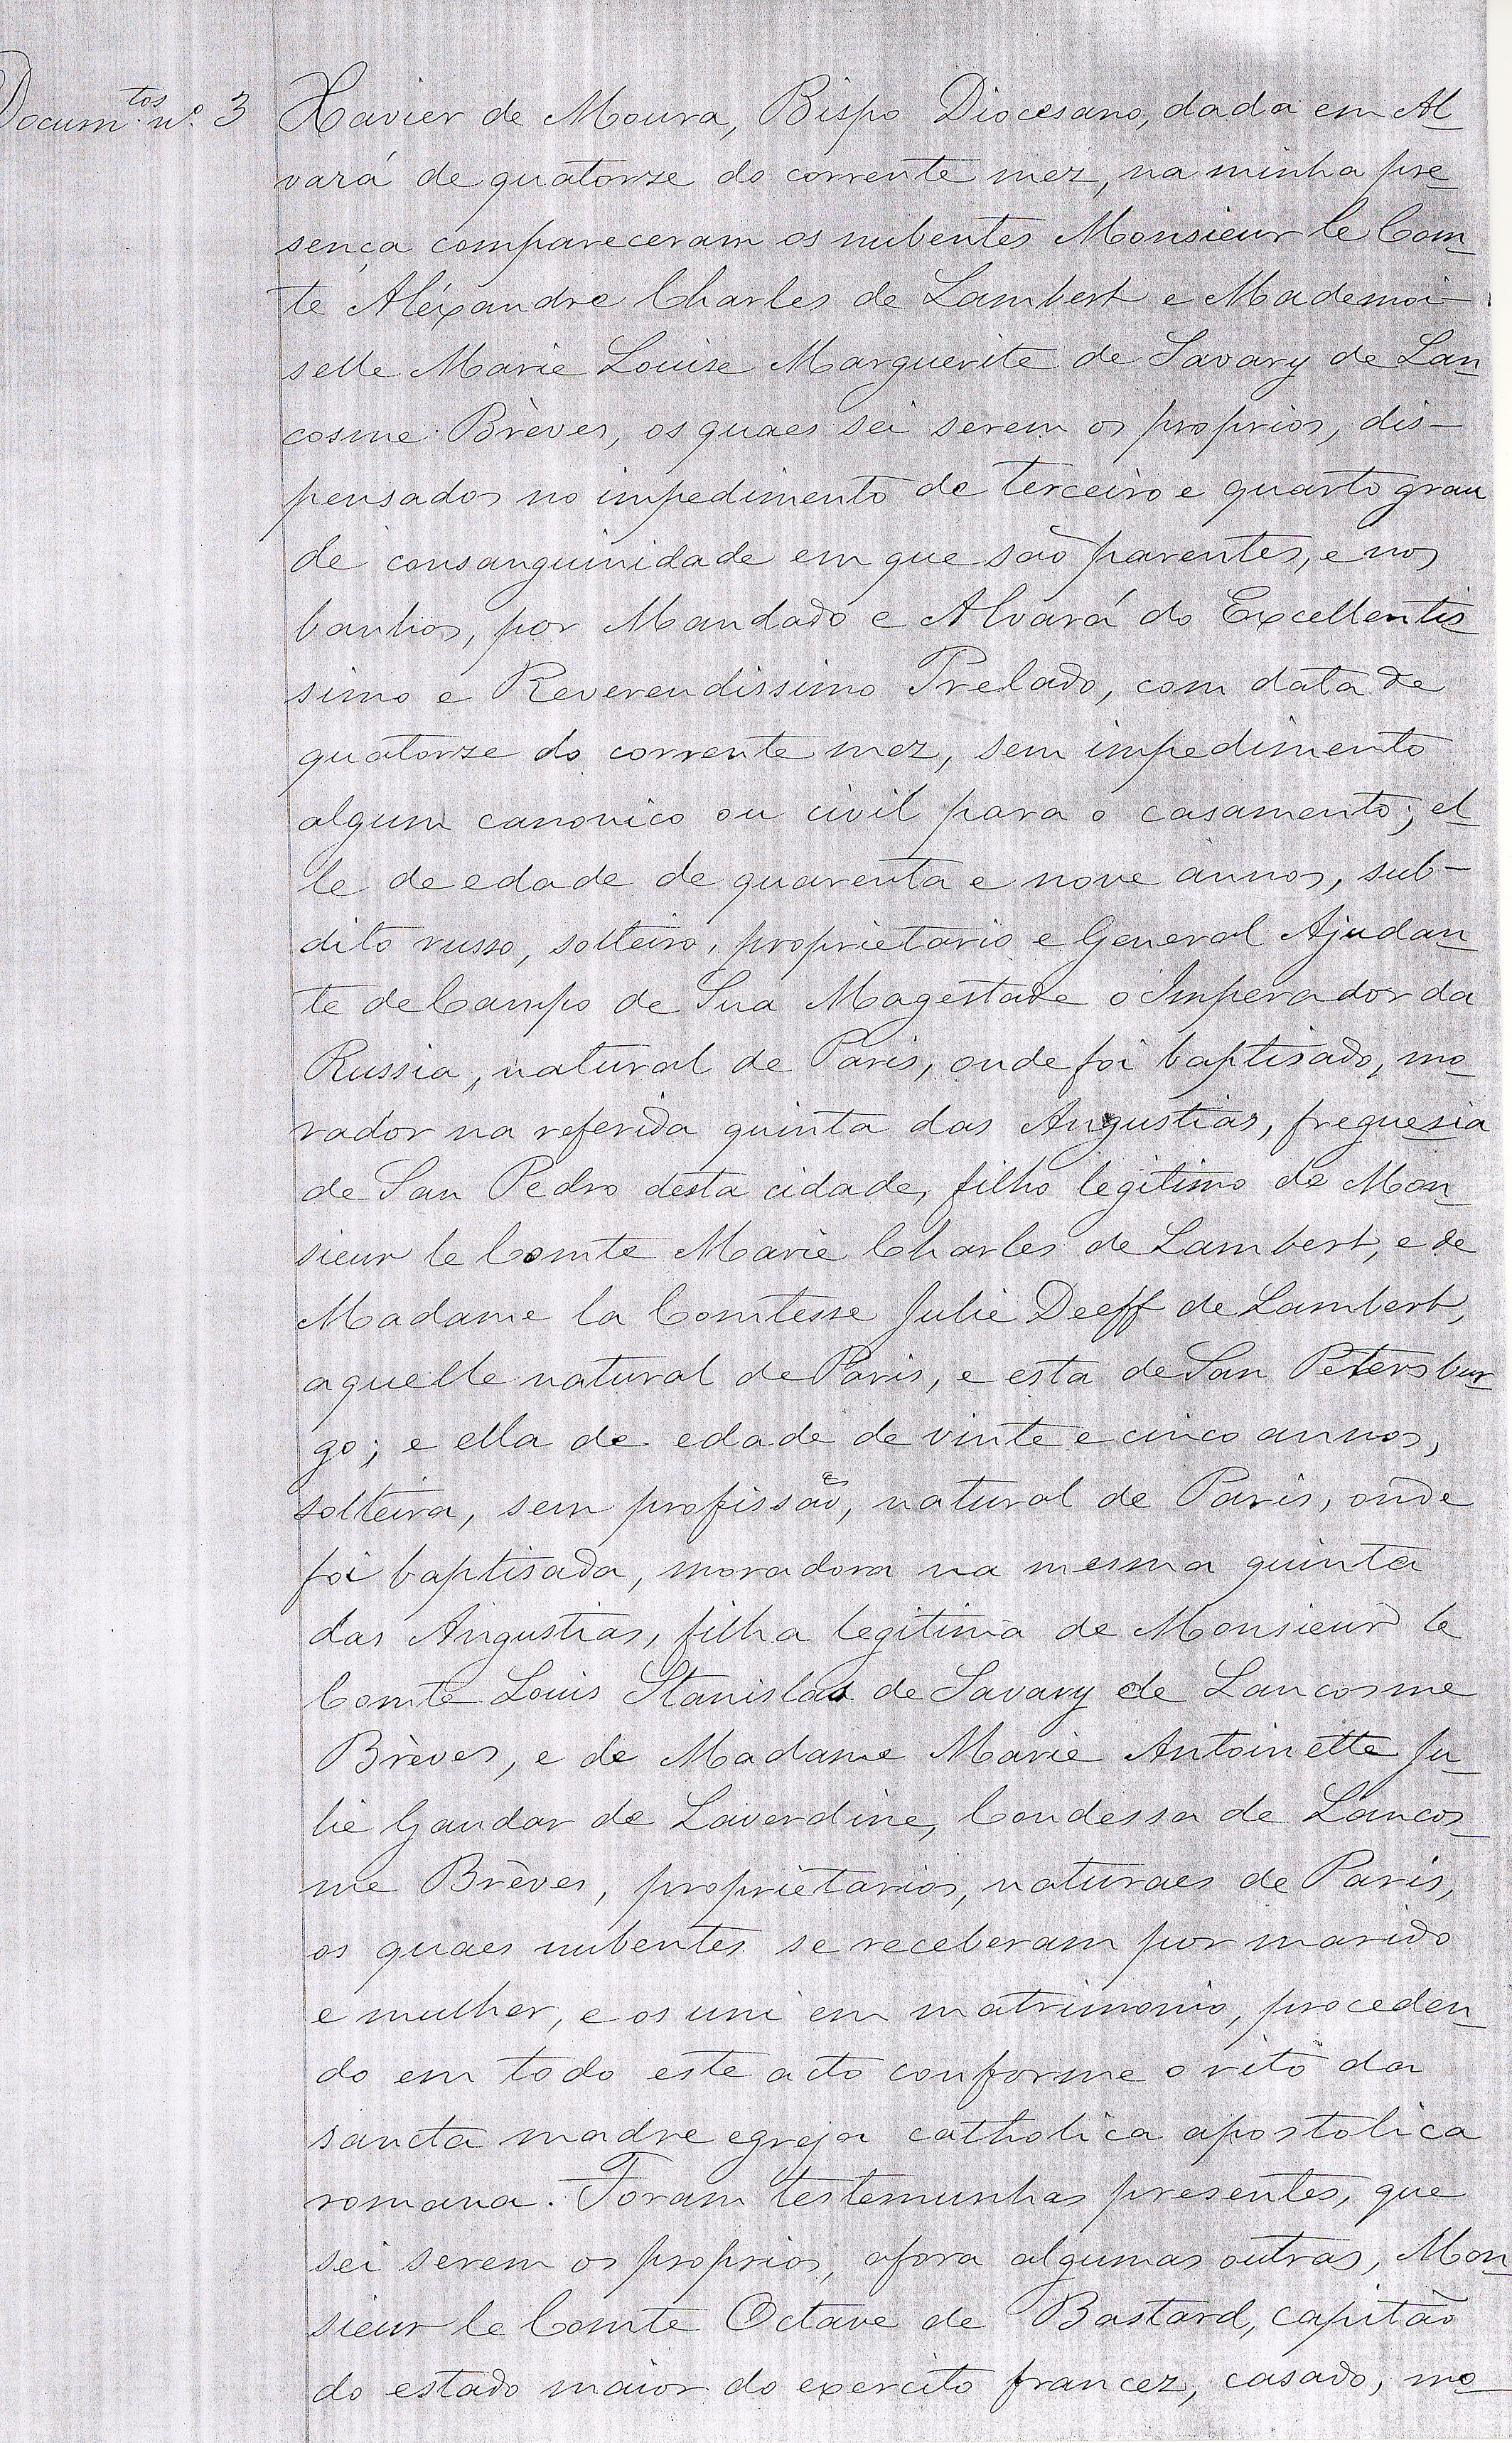 Docum.tos nº. 3
Xavier de Moura, Bispo Diocesano, dada em Al
vará de quatorze do corrente mez, na minha pre
sença compareceram os nubentes Monsieur le Com
te Aléxandre Charles de Lambert e Mademoi-
selle Marie Louise Marguerite de Savary de Lan
cosme Brèves, os quaes sei serem os proprios, dis-
pensados no impedimento de terceiro e quarto grau
de consanguinidade em que são parentes, e nos
banhos, por Mandado e Alvará do Excellentis
simo e Reverendissimo Prelado, com data de
quatorze do corrente mez, sem impedimento
algum canonico ou civil para o casamento; el
le de edade de quarenta e nove annos, sub-
dito russo, solteiro, proprietario e General Ajudan
te de Campo de Sua Magestade o Imperador da
Russia, natural de Paris, onde foi baptisado, mo
rador na referida quinta das Angustias, freguesia
de San Pedro desta cidade, filho legitimo de Mon
sieur le Comte Marie Charles de Lambert, e de
Madame la Comtesse Julie Deeff de Lambert,
aquelle natural de Paris, e esta de San Petersbur
go; e ella de edade de vinte e cinco annos,
solteira, sem profissão, natural de Paris, onde
foi baptisada, moradora na mesma quinta
das Angustias, filha legitima de Monsieur le
Comte Louis Stanislas de Savary de Lancosme
Brèves, e de Madame Marie Antoinette Ju
lie Gaudar de Laverdine, Condessa de Lancos
me Brèves, proprietarios, naturaes de Paris,
os quaes nubentes se receberam por marido
e mulher, e os uni em matrimonio, proceden
do em todo este acto conforme o rito da
sancta madre egreja catholica apostolica
romana. Foram testemunhas presentes, que
sei serem os proprios, afora algumas outras, Mon
sieur le Comte Octave de Bastard, capitão
do estado maior do exercito francez, casado, mo